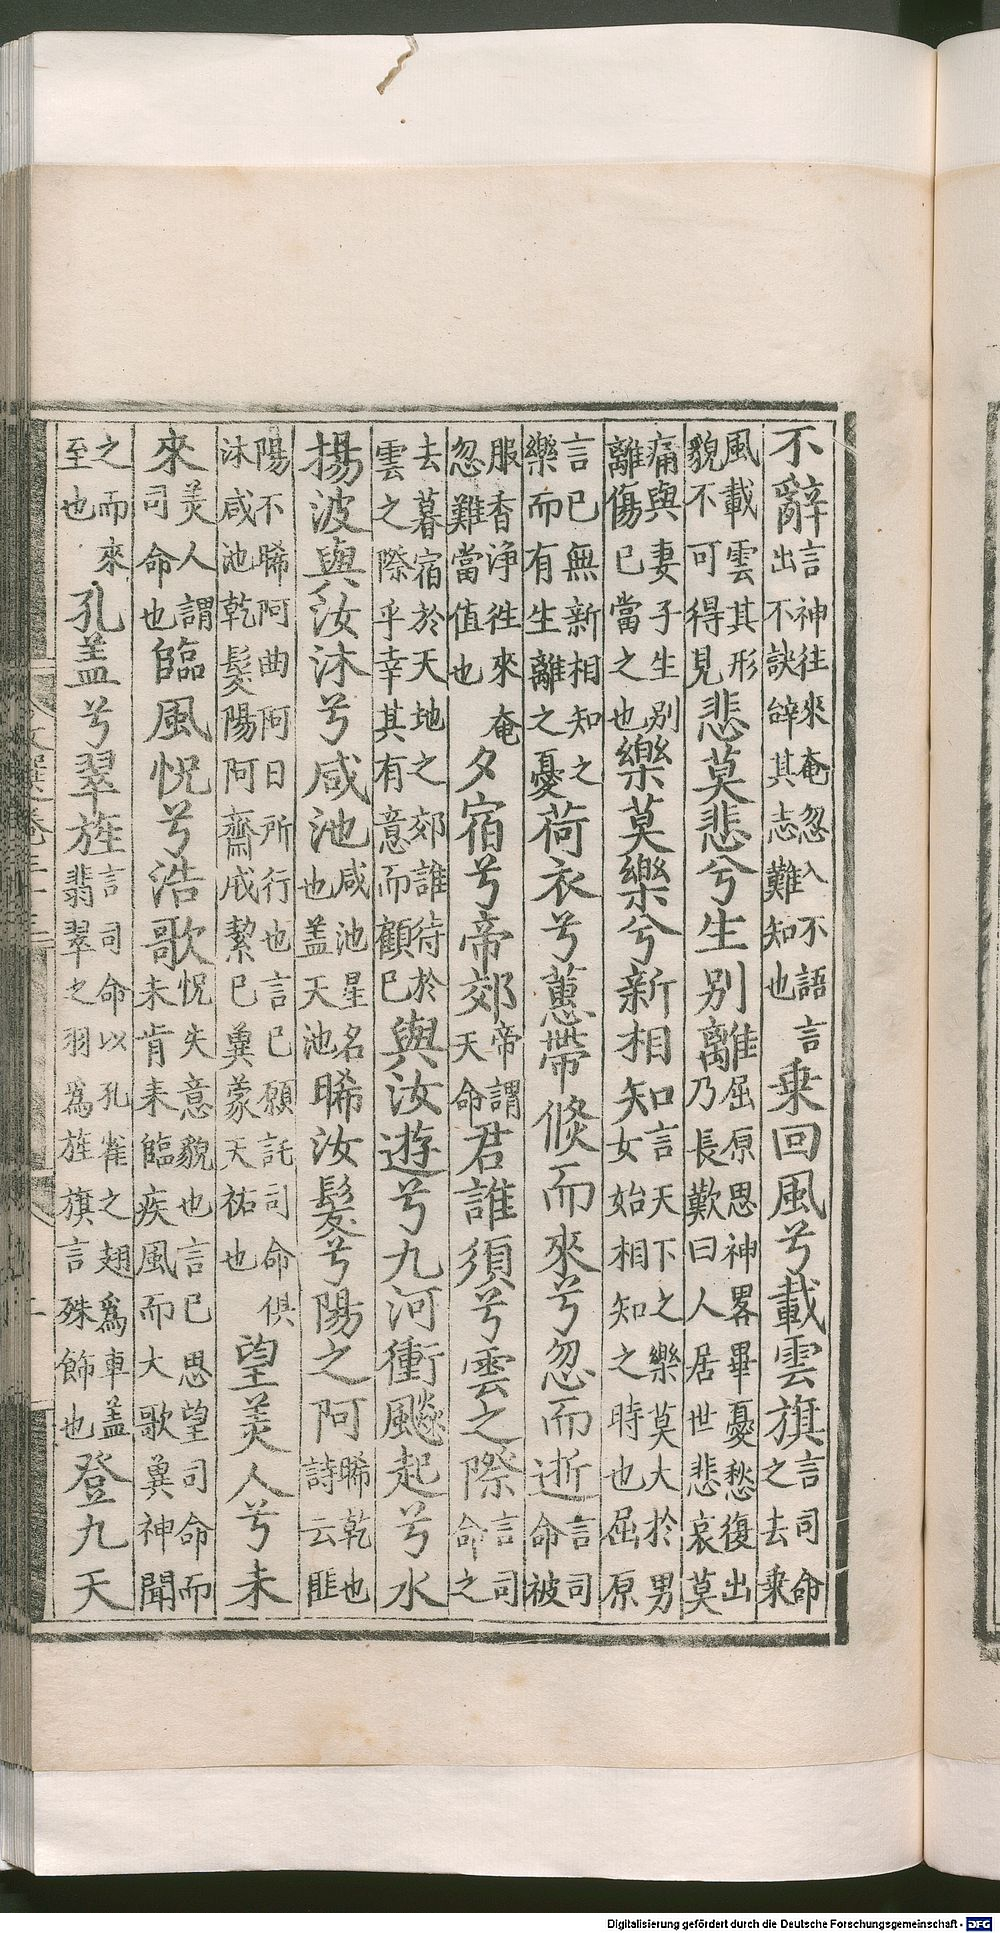 不辭言神往來奄忽入不語言出不訣辭其志難知也乗回風兮載雲旗言司命之去乗
風載雲其形貌不可得見悲莫悲兮生別離屈原思神畧畢憂愁復出乃長歎曰人居世悲哀莫
痛與妻子生別離傷已當之也樂莫樂兮新相知言天下之樂莫大於男女始相知之時也屈原
言已無新相知之樂而有生離之憂荷衣兮蕙帶倏而來兮忽而逝言司命被
服香浄徃來奄忽難當值也夕宿兮帝郊帝謂天命君誰須兮雲之際言司命之
去暮宿於天地之郊誰待於雲之際乎幸其有意而顧已與汝遊兮九河衝飈起兮水
揚波與汝沐兮咸池咸池星名也盖天池晞汝髮兮陽之阿晞乾也詩云匪
陽不晞阿曲阿日所行也言已願託司命俱沐咸池乾髮陽阿齋戒潔已冀蒙天祐也望羙人兮未
來羙人謂司命也臨風怳兮浩歌怳失意貌也言已思望司命而未肯来臨疾風而大歌冀神聞
之而來至也孔盖兮翠旌言司命以孔雀之翅爲車盖翡翠之羽爲旌旗言殊飾也登九天
文選卷三十三
Digitalisierung gefördert durch die Deutsche Forschungsgemeinschaft - DFG